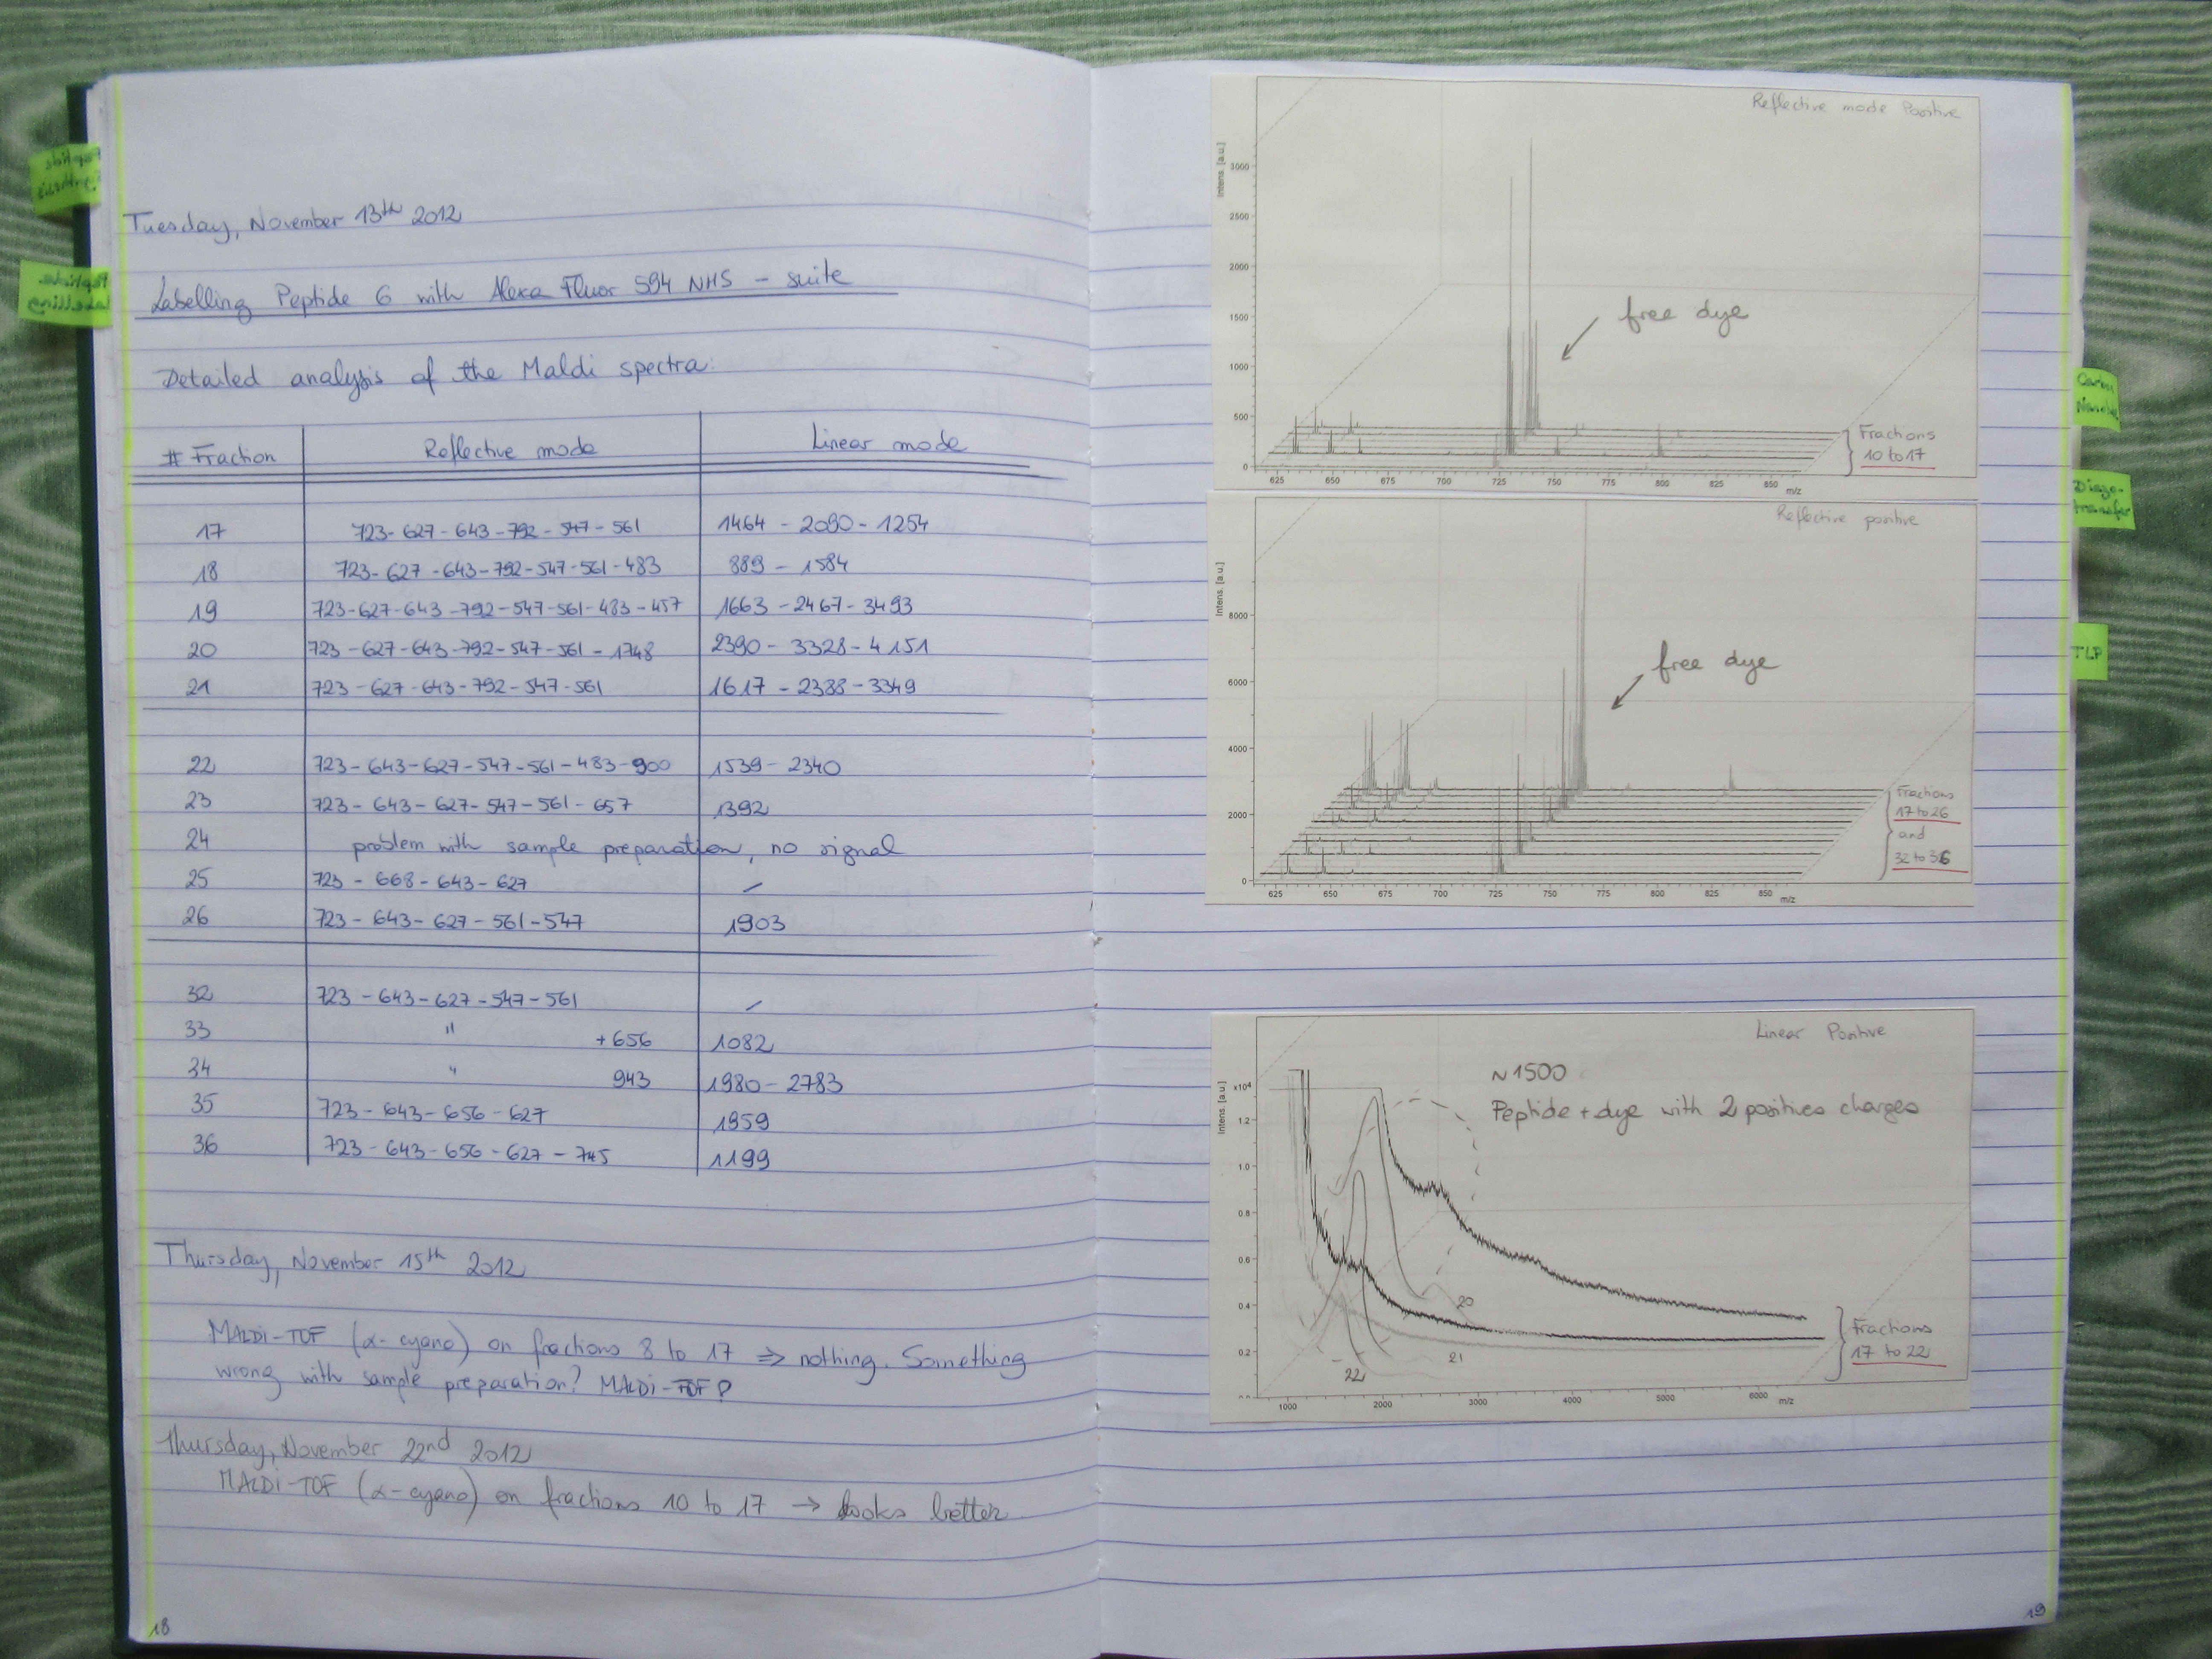 Tuesday, November 13th 2012
Labelling Peptide 6 with Alexa Fluor 594 NHS - suite
Detailed analysis of the Maldi spectra:
# Fraction Reflective mode Linear mode
17 723-627-643-792-547-561 1464-2090-1254
18 723-627-643-792-547-561-483 889-1584
19 723-627-643-792-547-561-483-457 1663-2467-3493
20 723-627-643-792-547-561-1748 2390-3328-4151
21 723-627-643-792-547-561 1617-2388-3349
22 723-643-627-547-561-483-900 1539-2340
23 723-643-627-547-561-657 1392
24 problem with sample preparation, no signal
25 723-668-643-627 /
26 723-643-627-561-547 1903
32 723-643-627-547-561 /
33 " +656 1082
34 " 943 1980-2783
35 723-643-656-627 1959
36 723-643-656-627-745 1199
Thursday, November 15th 2012
MALDI-TOF (α-cyano) on fractions 8 to 17 ⇒ nothing. Something
wrong with sample preparation? MALDI-TOF?
Thursday, November 22nd 2012
MALDI-TOF (α-cyano) on fractions 10 to 17 → looks better
18
Peptide
Synthesis
Peptide
Labelling
Reflective mode Positive
Intens. [a.u.]
3000
2500
2000
1500
1000
500
0
free dye
Fractions
10 to 17
625 650 675 700 725 750 775 800 825 850 m/z
Reflective positive
Intens. [a.u.]
8000
6000
4000
2000
0
free dye
Fractions
17 to 26
and
32 to 36
625 650 675 700 725 750 775 800 825 850 m/z
Linear Positive
Intens. [a.u.]
x10⁴
1.2
1.0
0.8
0.6
0.4
0.2
0.0
~1500
Peptide + dye with 2 positives charges
20
21
22
Fractions
17 to 22
1000 2000 3000 4000 5000 6000 m/z
19
Diazo-
transfer
TLP